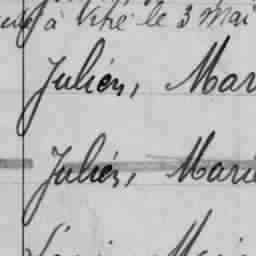 à Vitré le 3 Mai
Julien, Mar
Julien, Marie